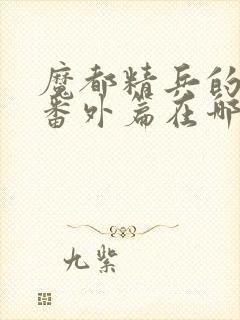 魔都精兵的
番外篇在哪
九紫